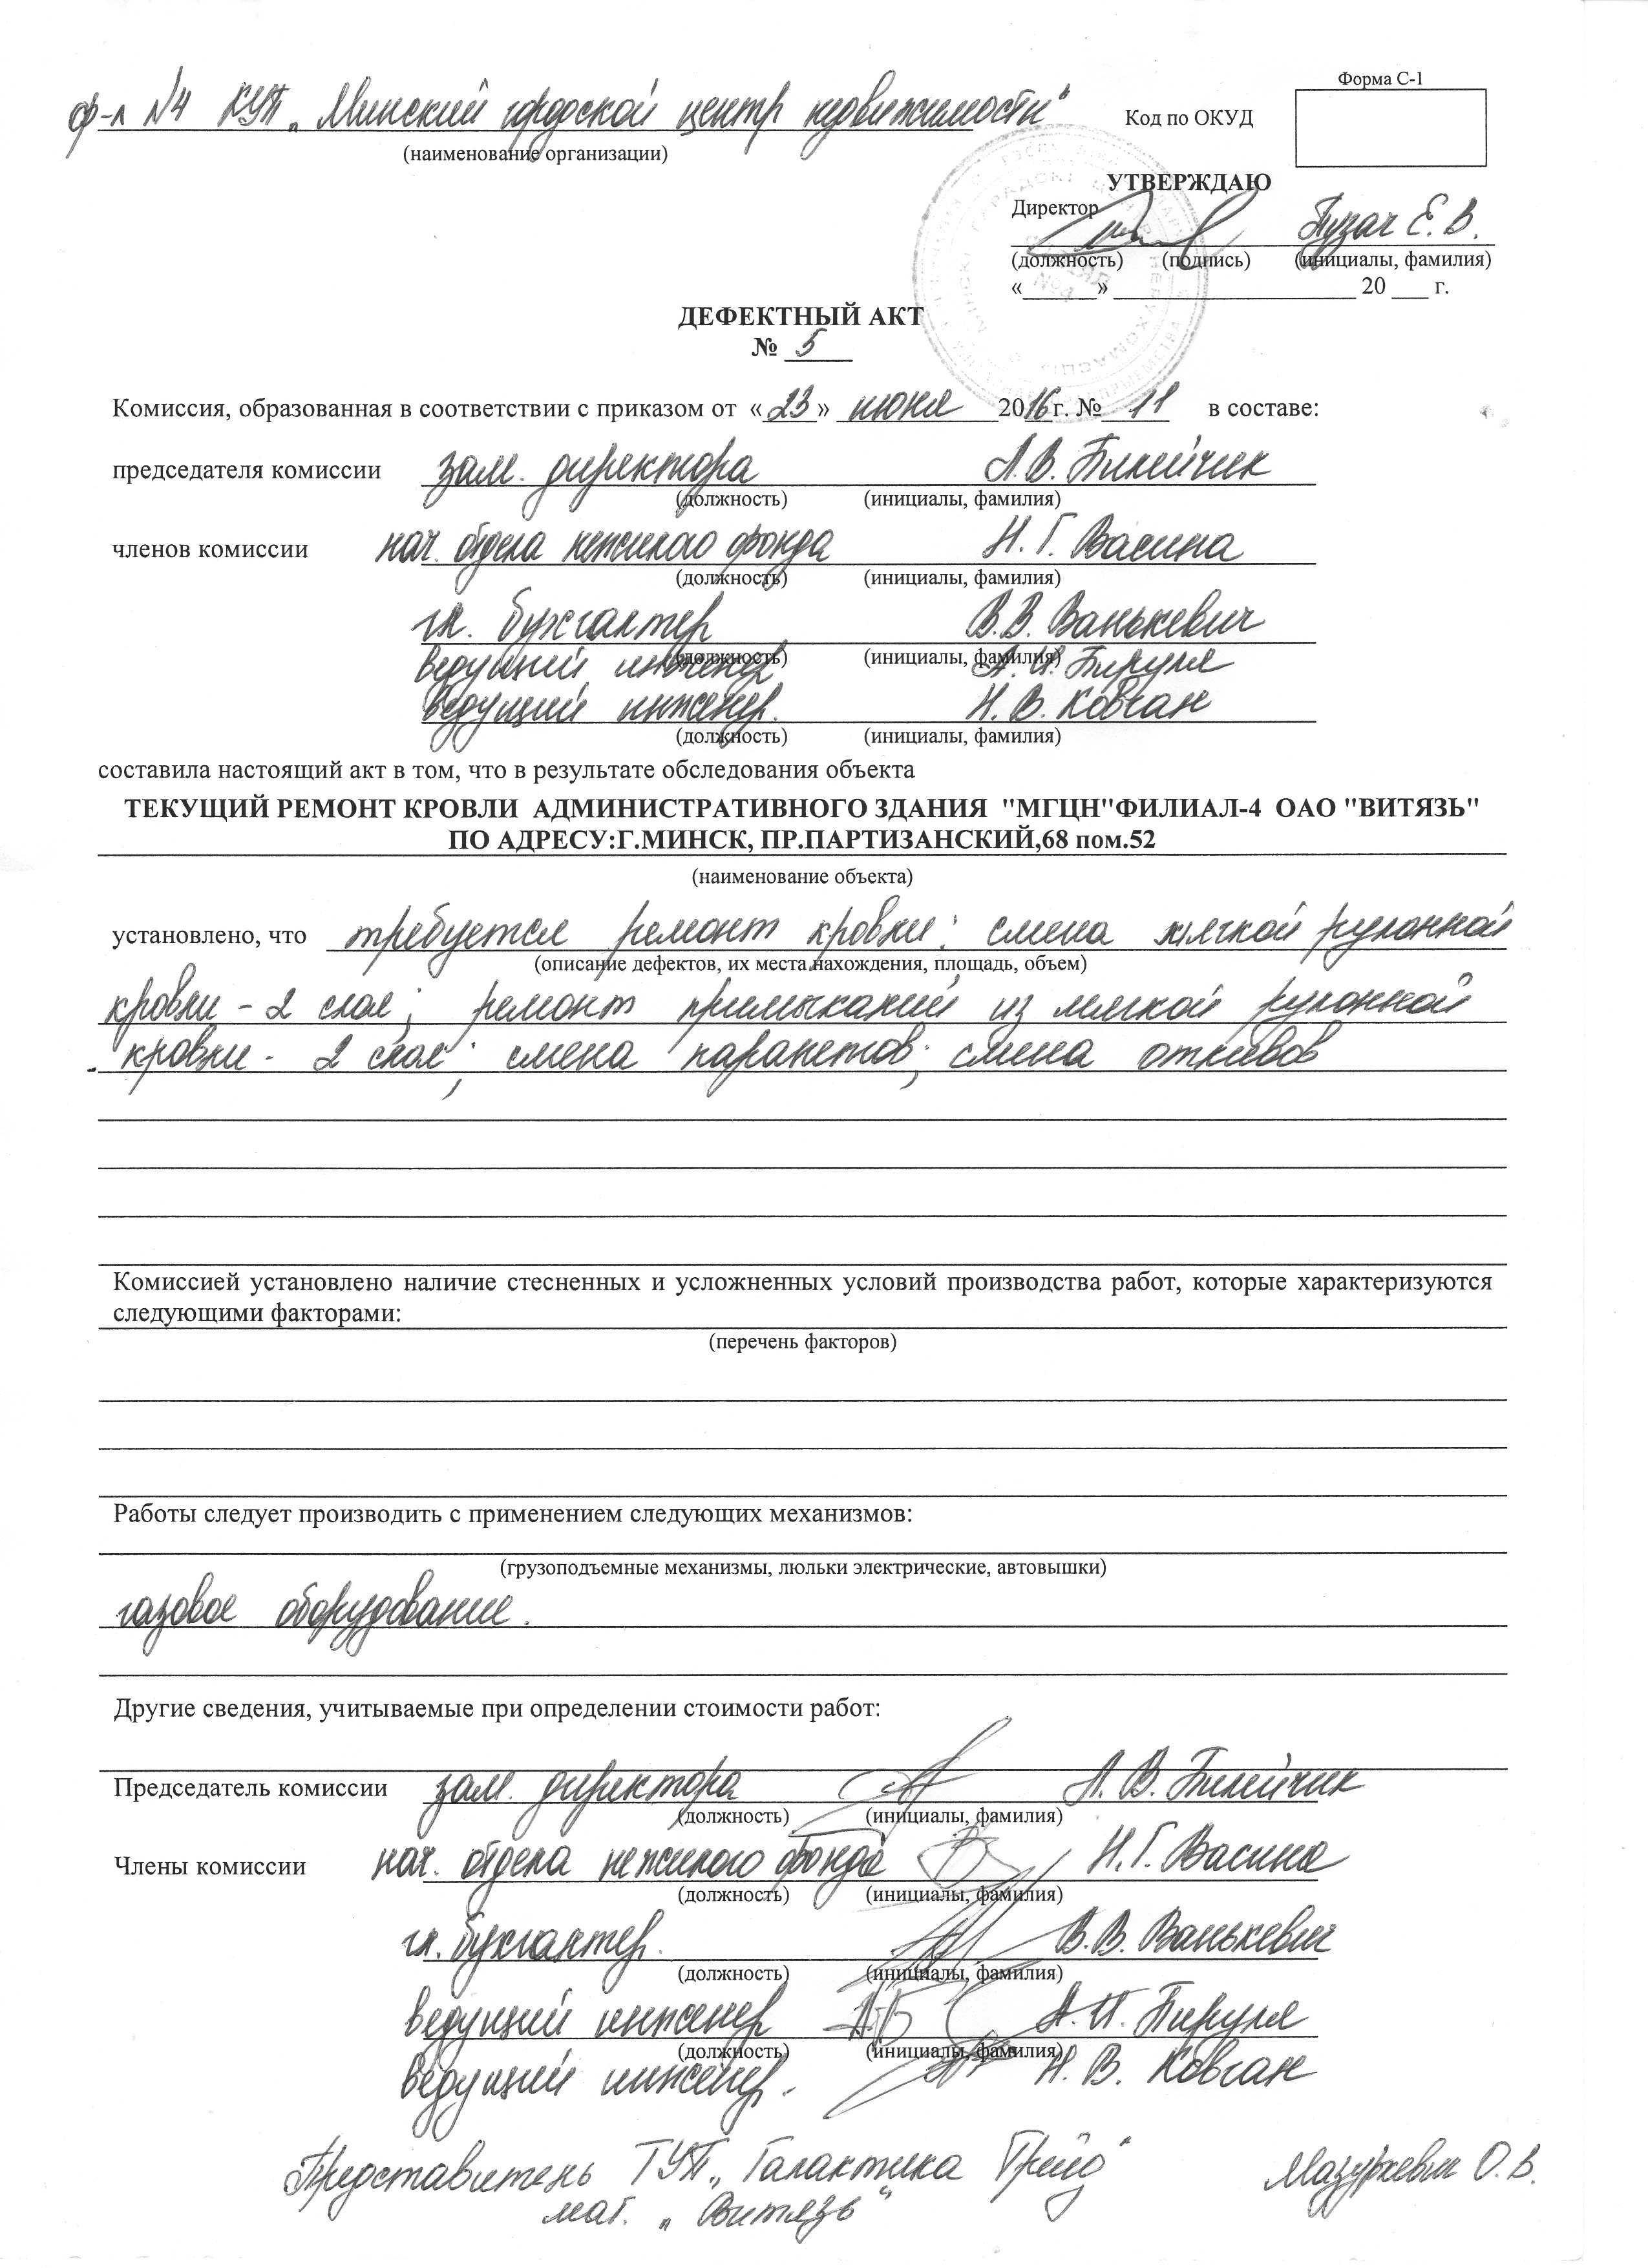 Форма С-1
ф-л №4 КУП „Минский городской центр недвижимости"
Код по ОКУД
(наименование организации)
УТВЕРЖДАЮ
Директор
Пузач Е. В.
(должность) (подпись) (инициалы, фамилия)
«______» ____________________ 20 ___ г.
ДЕФЕКТНЫЙ АКТ
№ 5
Комиссия, образованная в соответствии с приказом от «23» июня 2016г. № 11 в составе:
председателя комиссии зам. директора А.В. Билейчик
(должность) (инициалы, фамилия)
членов комиссии нач. отдела нежилого фонда Н. Г. Васина
(должность) (инициалы, фамилия)
гл. бухгалтер В.В. Ванькевич
(должность) (инициалы, фамилия)
ведущий инженер А. И. Бируля
ведущий инженер. Н. В. Ковган
(должность) (инициалы, фамилия)
составила настоящий акт в том, что в результате обследования объекта
ТЕКУЩИЙ РЕМОНТ КРОВЛИ АДМИНИСТРАТИВНОГО ЗДАНИЯ "МГЦН"ФИЛИАЛ-4 ОАО "ВИТЯЗЬ"
ПО АДРЕСУ:Г.МИНСК, ПР.ПАРТИЗАНСКИЙ,68 пом.52
(наименование объекта)
установлено, что требуется ремонт кровли: смена мягкой рулонной
(описание дефектов, их места нахождения, площадь, объем)
кровли - 2 слоя; ремонт примыканий из мягкой рулонной
кровли - 2 слоя; смена парапетов; смена отливов
Комиссией установлено наличие стесненных и усложненных условий производства работ, которые характеризуются
следующими факторами:
(перечень факторов)
Работы следует производить с применением следующих механизмов:
(грузоподъемные механизмы, люльки электрические, автовышки)
газовое оборудование.
Другие сведения, учитываемые при определении стоимости работ:
Председатель комиссии зам. директора А. В. Билейчик
(должность) (инициалы, фамилия)
Члены комиссии нач. отдела нежилого фонда Н.Г. Васина
(должность) (инициалы, фамилия)
гл. бухгалтер. В.В. Ванькевич
(должность) (инициалы, фамилия)
ведущий инженер А. И. Бируля
(должность) (инициалы, фамилия)
ведущий инженер. Н. В. Ковган
Представитель ТУП „Галактика Трейд"
маг. „Витязь" Мазуркевич О. В.